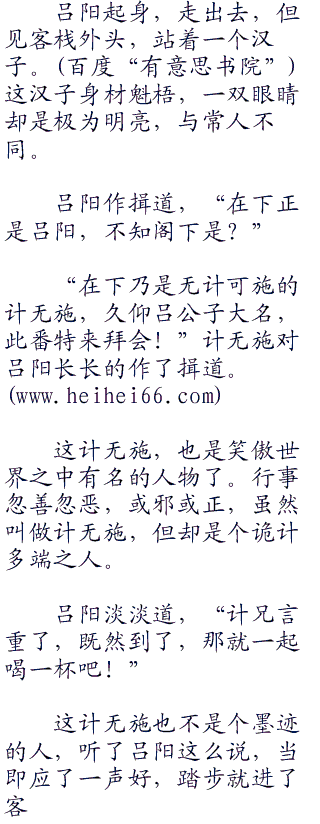 吕阳起身，走出去，但
见客栈外头，站着一个汉
子。(百度“有意思书院”)
这汉子身材魁梧，一双眼睛
却是极为明亮，与常人不
同。
吕阳作揖道，“在下正
是吕阳，不知阁下是？”
“在下乃是无计可施的
计无施，久仰吕公子大名，
此番特来拜会！”计无施对
吕阳长长的作了揖道。
(www.heihei66.com)
这计无施，也是笑傲世
界之中有名的人物了。行事
忽善忽恶，或邪或正，虽然
叫做计无施，但却是个诡计
多端之人。
吕阳淡淡道，“计兄言
重了，既然到了，那就一起
喝一杯吧！”
这计无施也不是个墨迹
的人，听了吕阳这么说，当
即应了一声好，踏步就进了
客